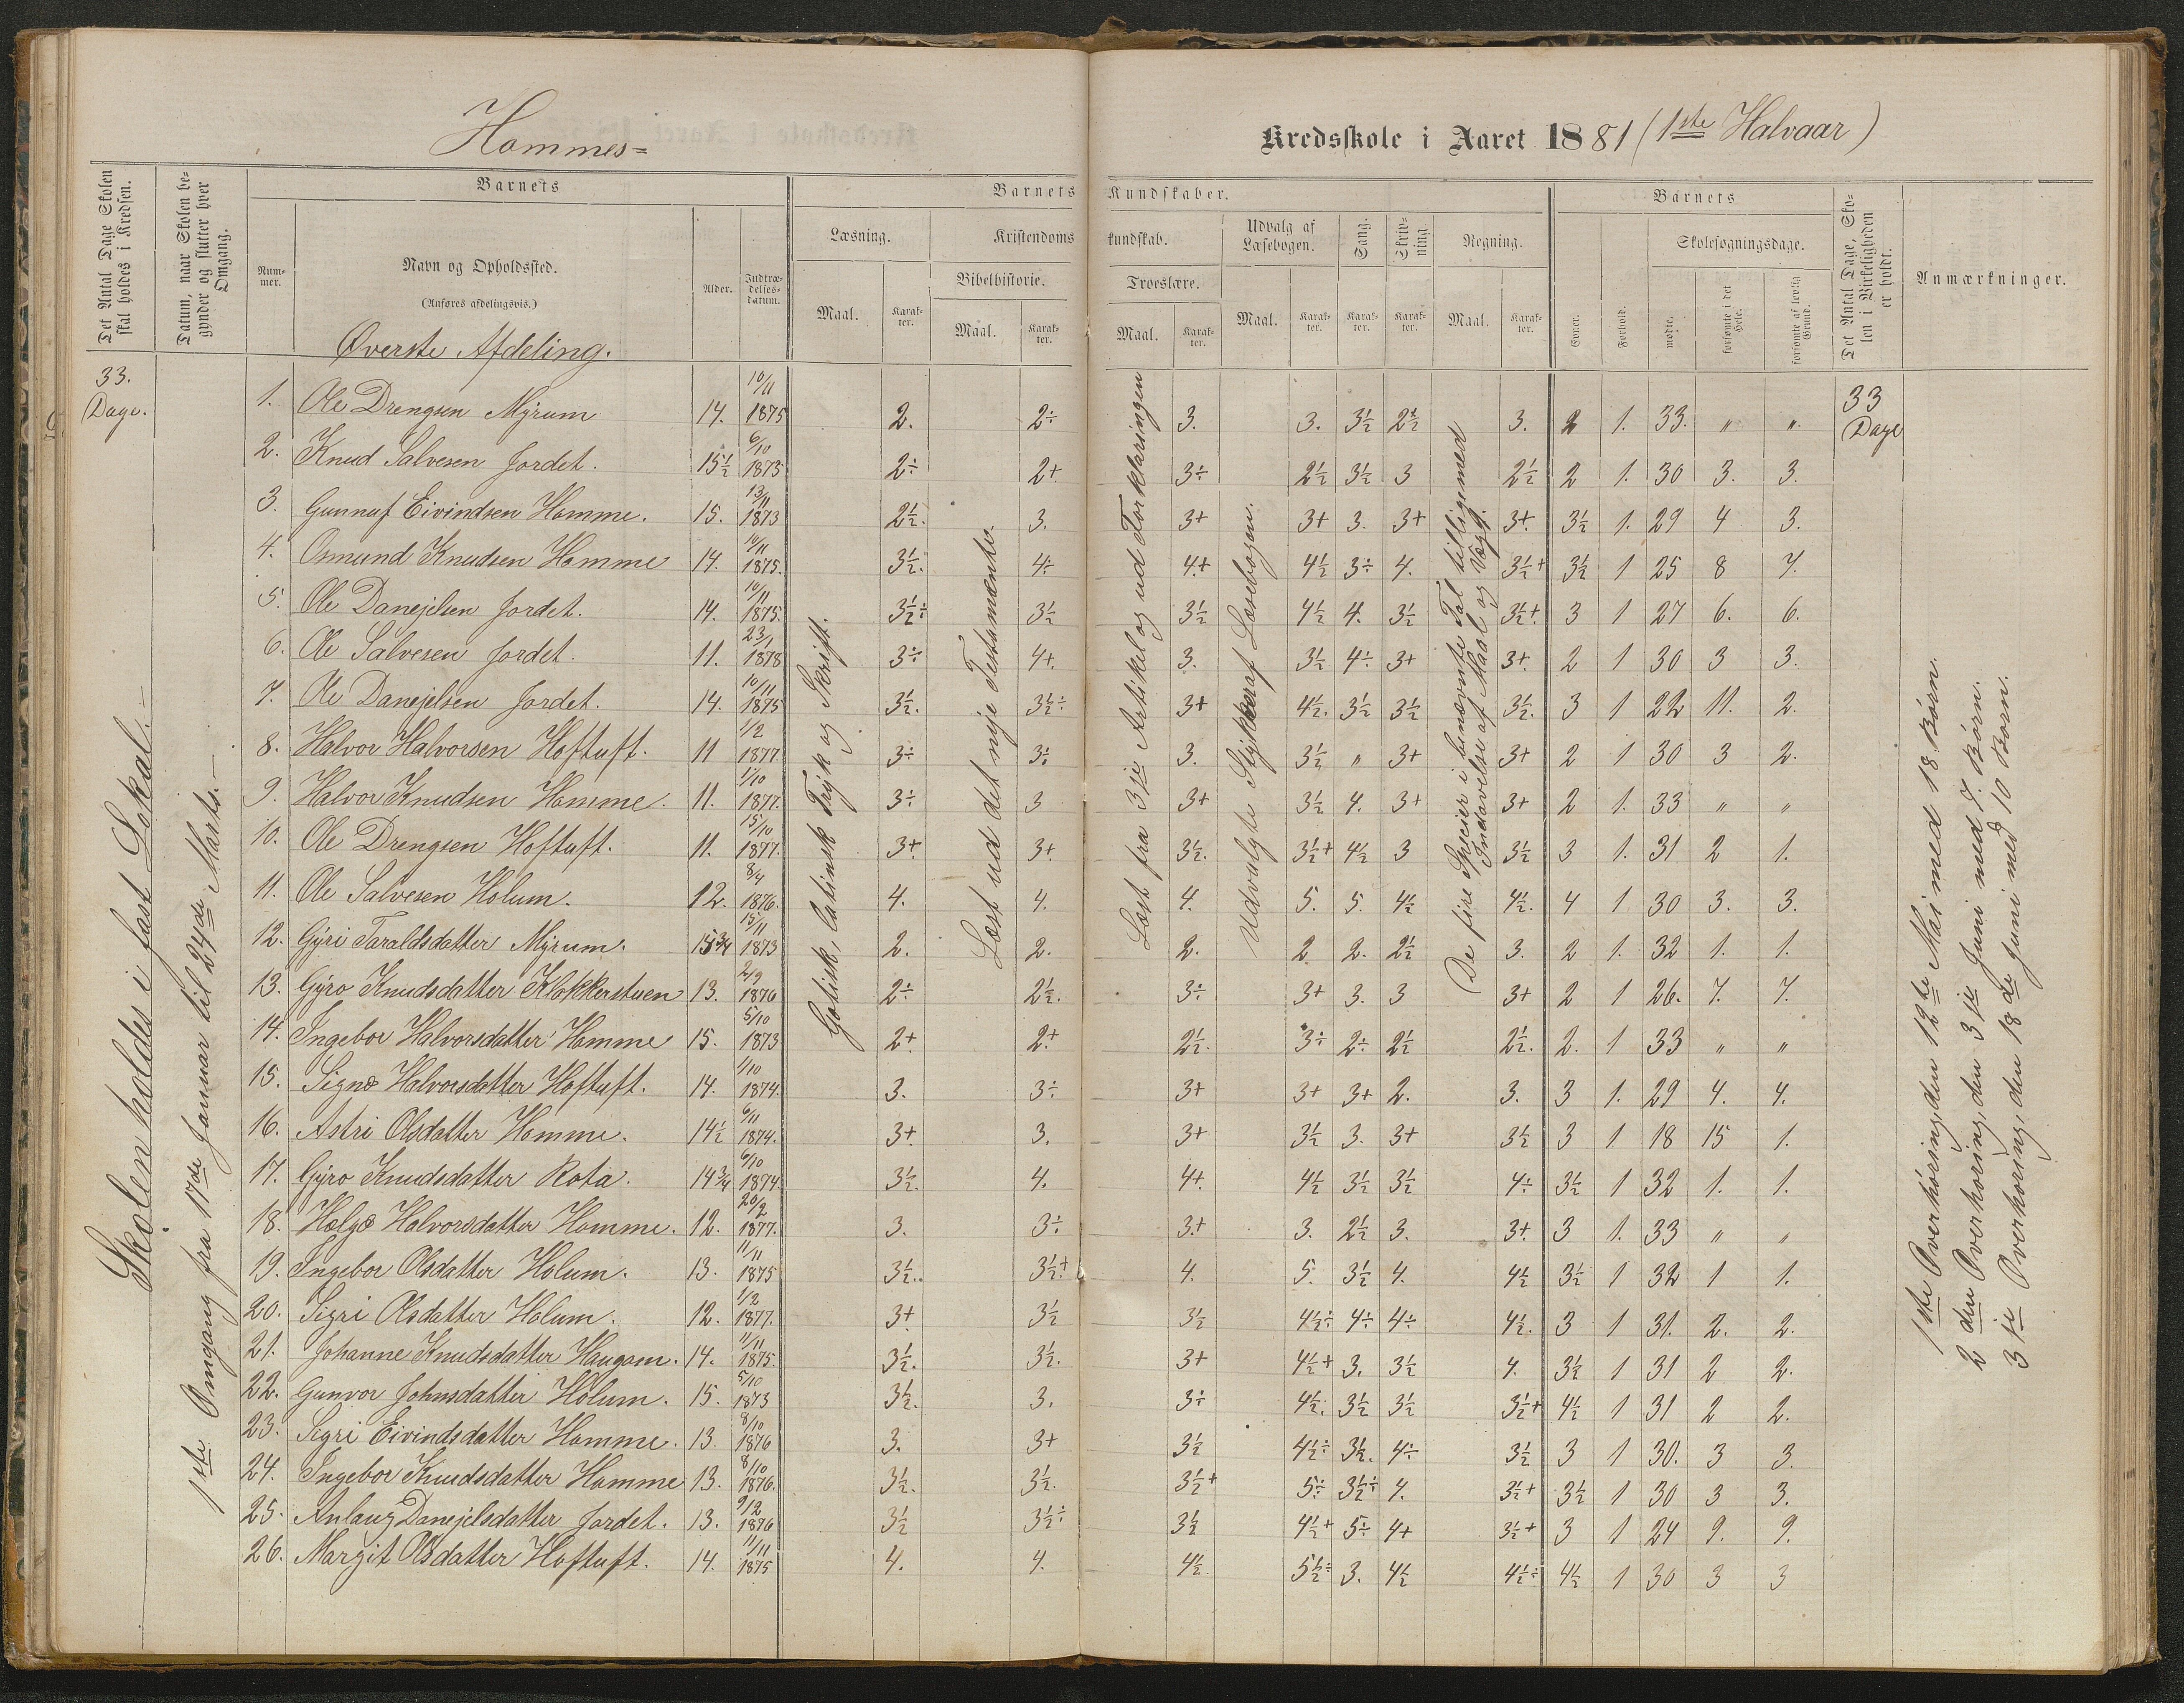 Hommes=
Kredsskole i Aaret 1881 (1ste Halvaar)
Det Antal Dage Skolen skal holdes i Kredsen.
Datum, naar Skolen begynder og slutter hver Omgang.
Barnets
Nummer.
Navn og Opholdssted.
(Anføres afdelingsvis.)
Øverste Afdeling.
Alder.
Indtrædelses-datum.
Barnets Kundskaber.
Læsning.
Kristendomskundskab.
Bibelhistorie.
Troeslære.
Udvalg af Læsebogen.
Sang.
Skrivning.
Regning.
Maal. Karakter. Maal. Karakter. Maal. Karakter. Maal. Karakter. Karakter. Karakter. Maal. Karakter.
Barnets
Evner.
Forhold.
Skolesøgningsdage.
mødte.
forsømte i det Hele.
forsømte af lovlig Grund.
Det Antal Dage, Skolen i Virkeligheden er holdt.
Anmærkninger.
33. Dage.
Skolen holdes i fast Lokal. –
1ste Omgang fra 17de Januar til 24de Marts. –
Gotisk, latinsk Tryk og Skrift.
Læst ud det nye Testamente.
Læst fra 3je Artikel og ud Forklaringen
Udvalgte Stykker af Læsebogen.
De fire Specier i benævnte Tal tilligemed
Indøvelse af Maal og Vægt.
33 Dage
1ste Overhøring, den 12te Mai med 18 Børn.
2den Overhøring, den 3je Juni med 7. Børn.
3je Overhøring, den 18de Juni med 10 Børn.
1. Ole Drengsen Myrum 14. 10/11 1875 2. 2÷ 3. 3. 3½ 2½ 3. 2 1. 33. " "
2. Knud Salvesen Jordet. 15½ 6/10 1873 2÷ 2+ 3÷ 2½ 3½ 3 2½ 2 1. 30 3. 3.
3. Gunnuf Eivindsen Homme. 15. 13/11 1873 2½. 3. 3+ 3+ 3. 3+ 3+. 3½ 1. 29 4 3.
4. Osmund Knudsen Homme 14. 10/11 1875. 3½. 4÷ 4.+ 4½ 3÷ 4. 3½+ 3½ 1 25 8 7.
5. Ole Danejelsen Jordet. 14. 10/11 1875. 3½÷ 3½ 3½ 4½ 4. 3½ 3½+. 3 1 27 6. 6.
6. Ole Salvesen Jordet. 11. 23/1 1878 3÷ 4+. 3. 3½ 4÷ 3+ 3+. 2 1 30 3 3.
7. Ole Danejelsen Jordet. 14. 10/11 1875 3½. 3½÷ 3+ 4½. 3½ 3½ 3½. 3 1 22 11. 2.
8. Halvor Halvorsen Hoftuft. 11 1/2 1877. 3÷ 3÷ 3. 3½ " 3+ 3+ 2 1 30 3 2.
9. Halvor Knudsen Homme. 11. 1/10 1877. 3÷ 3 3+ 3½ 4. 3+ 3+ 2 1. 33 " "
10. Ole Drengsen Hoftuft. 11. 15/10 1877. 3+. 3+. 3½. 3½+ 4½ 3 3½ 3 1. 31 2 1.
11. Ole Salvesen Holum. 12. 8/4 1876. 4. 4. 4. 5. 5. 4½ 4½. 4 1 30 3. 3.
12. Gyri Taraldsdatter Myrum. 15¾ 15/11 1873 2. 2. 2. 2 2. 2½ 3. 2 1. 32 1. 1.
13. Gyro Knudsdatter Klokkerstuen 13. 2/9 1876 2÷ 2½. 3÷ 3+ 3. 3 3+ 2 1 26. 7. 7.
14. Ingebor Halvorsdatter Homme 15. 5/10 1873 2+ 2+ 2½. 3÷ 2÷ 2½ 2½. 2. 1 33 " "
15. Signe Halvorsdatter Hoftuft. 14. 1/10 1874. 3. 3÷ 3+ 3+ 3+ 2. 3. 3 1. 29 4. 4.
16. Astri Olsdatter Homme. 14½ 6/11 1874. 3+. 3. 3+ 3½ 3. 3+ 3½ 3 1 18 15 1.
17. Gyro Knudsdatter Rota. 14¾ 6/10 1874. 3½. 4. 4+. 4½ 3½ 3½ 4÷ 3½ 1 32 1. 1.
18. Helge Halvorsdatter Homme. 12. 20/2 1877. 3. 3÷ 3.+ 3. 2½ 3. 3+. 3 1. 33 " "
19. Ingebor Olsdatter Holum. 13. 11/11 1875 3½. 3½+ 4. 5. 3½ 4. 4½ 3½ 1 32 1 1.
20. Sigri Olsdatter Holum. 12. 1/2 1877. 3+ 3½ 3½ 4½÷ 4÷ 4÷ 4½. 3 1 31. 2. 2.
21. Johanne Knudsdatter Haugom. 14. 11/11 1875. 3½. 3½. 3+ 4½+ 3. 3½ 4. 3½ 1 31 2 2.
22. Gunvor Johnsdatter Holum. 15. 5/10 1873 3½. 3. 3÷ 4½. 3½ 3½ 3½+ 4½ 1 31 2 2.
23. Sigri Eivindsdatter Homme. 13. 8/10 1876 3. 3+ 3½ 4½÷ 3½. 4÷ 3½ 3 1 30. 3 3.
24. Ingebor Knudsdatter Homme 13. 8/10 1876. 3½. 3½. 3½+ 5÷ 3½÷ 4. 3½+ 3½ 1 30 3 3.
25. Anlaug Danejelsdatter Jordet. 13. 9/2 1876 3½ 3½÷ 3½ 4½+ 5÷ 4+ 3½+ 3 1 24 9. 9.
26. Margit Olsdatter Hoftuft. 14. 11/11 1875 4. 4. 4½. 5½÷ 3. 4½ 4½÷ 4½ 1 30 3 3